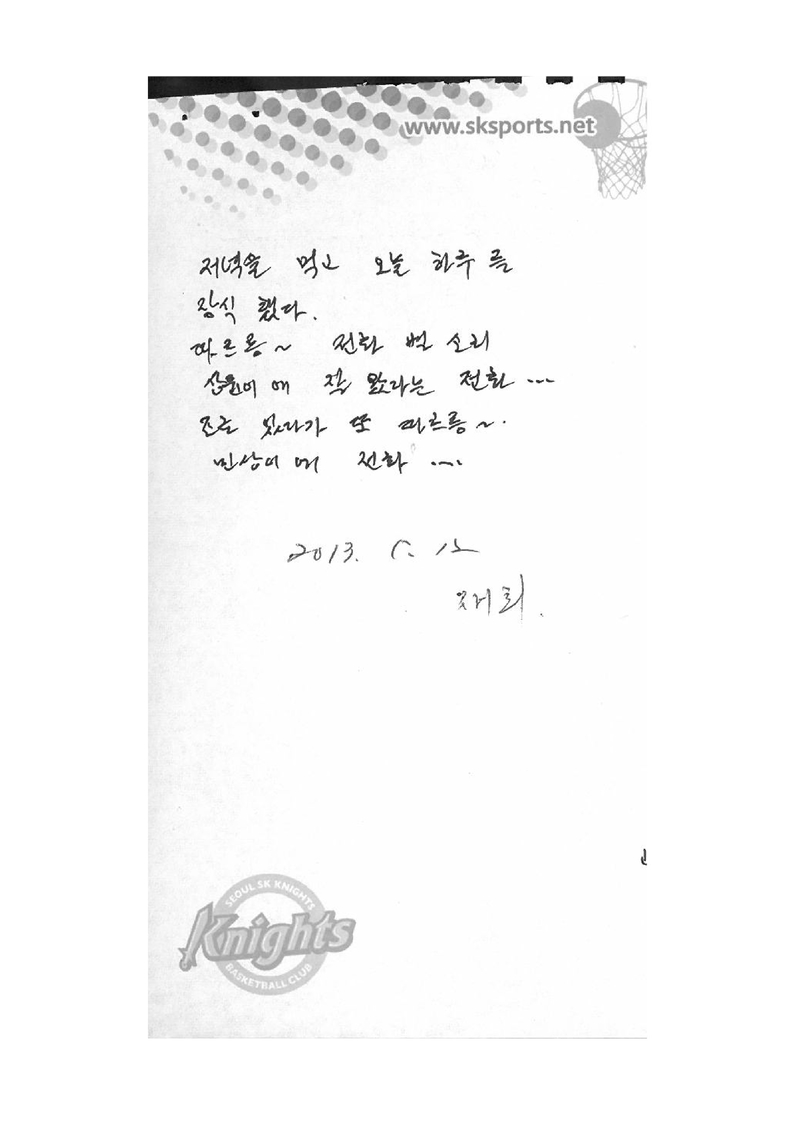 www.sksports.net
저녁을 먹고 오늘 하루를
장식 했다.
따르릉~ 전화 벨 소리
이 에 잘 왔다라는 전화 ...
조금 있다가 또 따르릉~.
민상이 에 전화 ....
2013. 12
SEOUL SK KNIGHTS
Knights
BASKETBALL CLUB